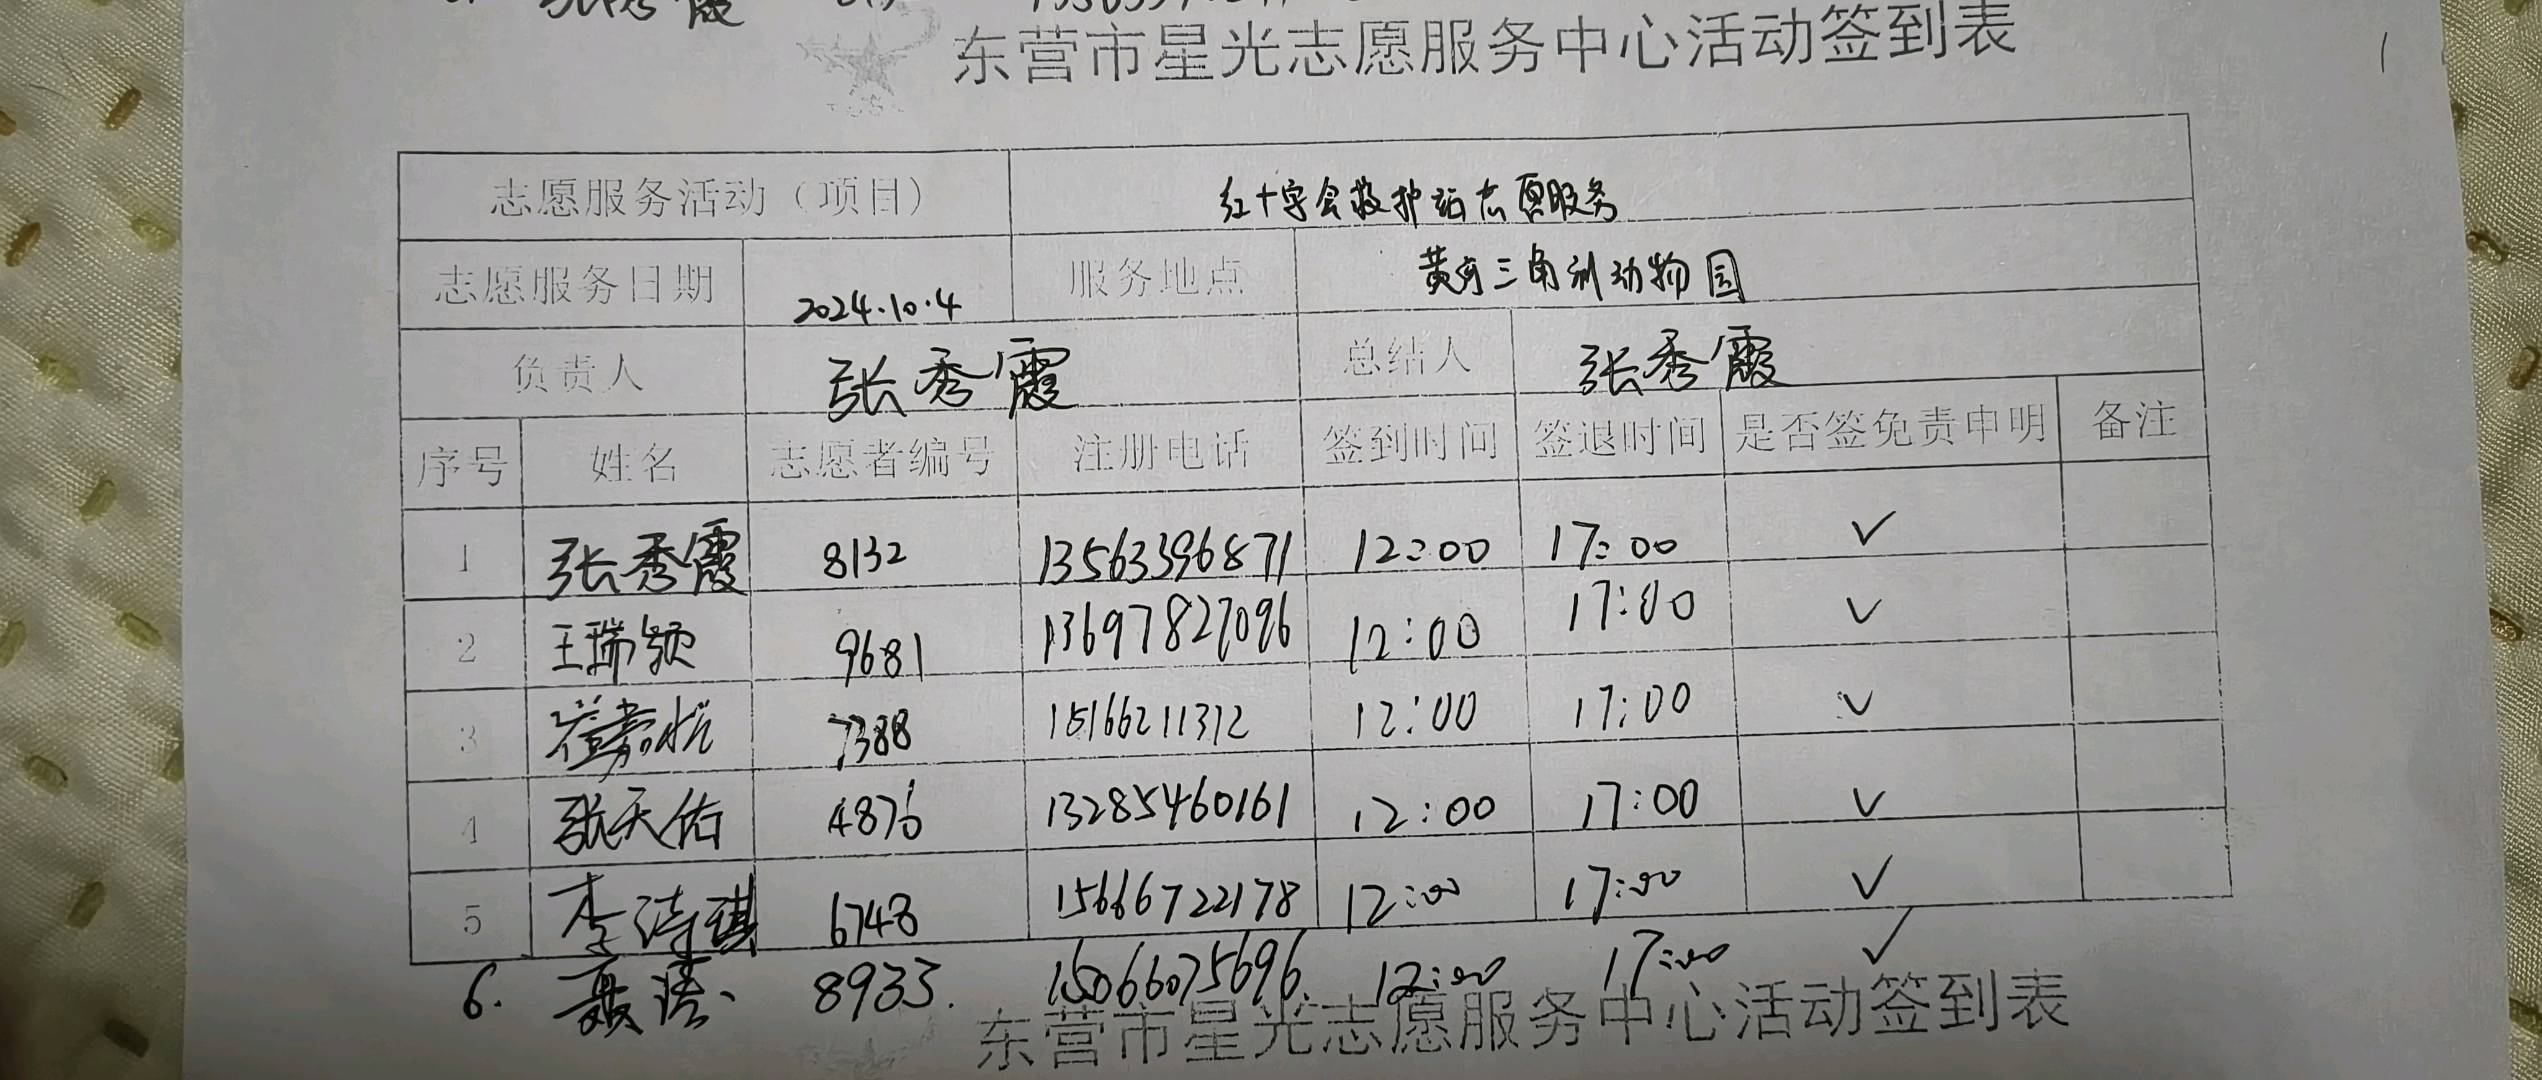 张秀霞
东营市星光志愿服务中心活动签到表
志愿服务活动（项目） 红十字会救护站志愿服务
志愿服务日期 2024.10.4 服务地点 黄河三角洲动物园
负责人 张秀霞 总结人 张秀霞
序号 姓名 志愿者编号 注册电话 签到时间 签退时间 是否签免责申明 备注
1 张秀霞 8132 13563396871 12:00 17:00 ✓
2 王瑞颖 9681 13697827096 12:00 17:00 ✓
3 崔嘉悦 7388 15166211312 12:00 17:00 ✓
4 张天佑 4876 13285460161 12:00 17:00 ✓
5 李诗琪 6748 15666722178 12:00 17:00 ✓
6. 聂涛 8933. 15066075696. 12:00 17:00 ✓
东营市星光志愿服务中心活动签到表